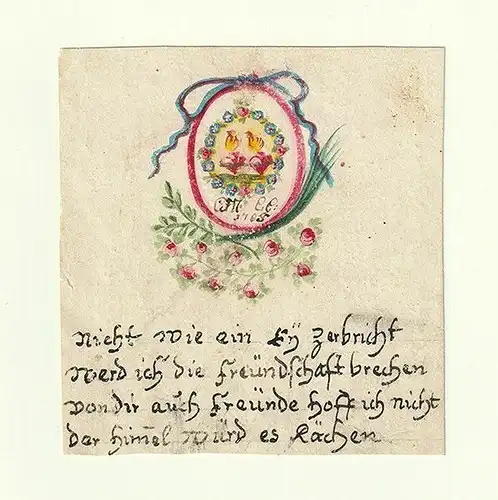 1765
Nicht wie ein Eÿ zerbricht
werd ich die freündschaft brechen
von dir auch freünde hoff ich nicht
der him̄el würd es Rächen